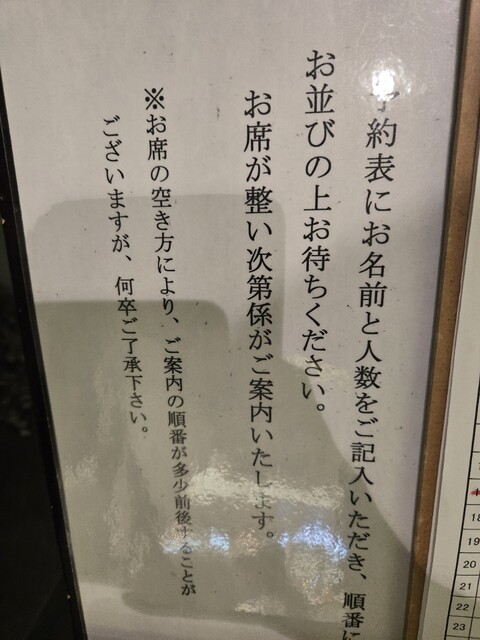 予約表にお名前と人数をご記入いただき、順番に
お並びの上お待ちください。
お席が整い次第係がご案内いたします。
※お席の空き方により、ご案内の順番が多少前後することが
ございますが、何卒ご了承下さい。
18
19
20
21
22
23